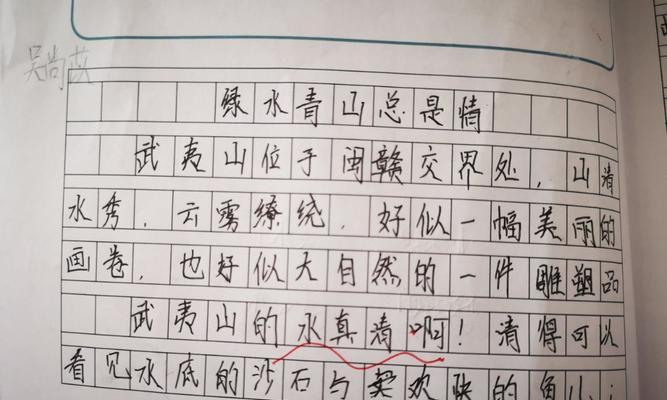 吴尚苡
绿水青山总是情
武夷山位于闽赣交界处，山清
水秀，云雾缭绕，好似一幅美丽的
画卷，也好似大自然的一件雕塑品
武夷山的水真清啊！清得可以
看见水底的沙石与欢快的鱼儿；